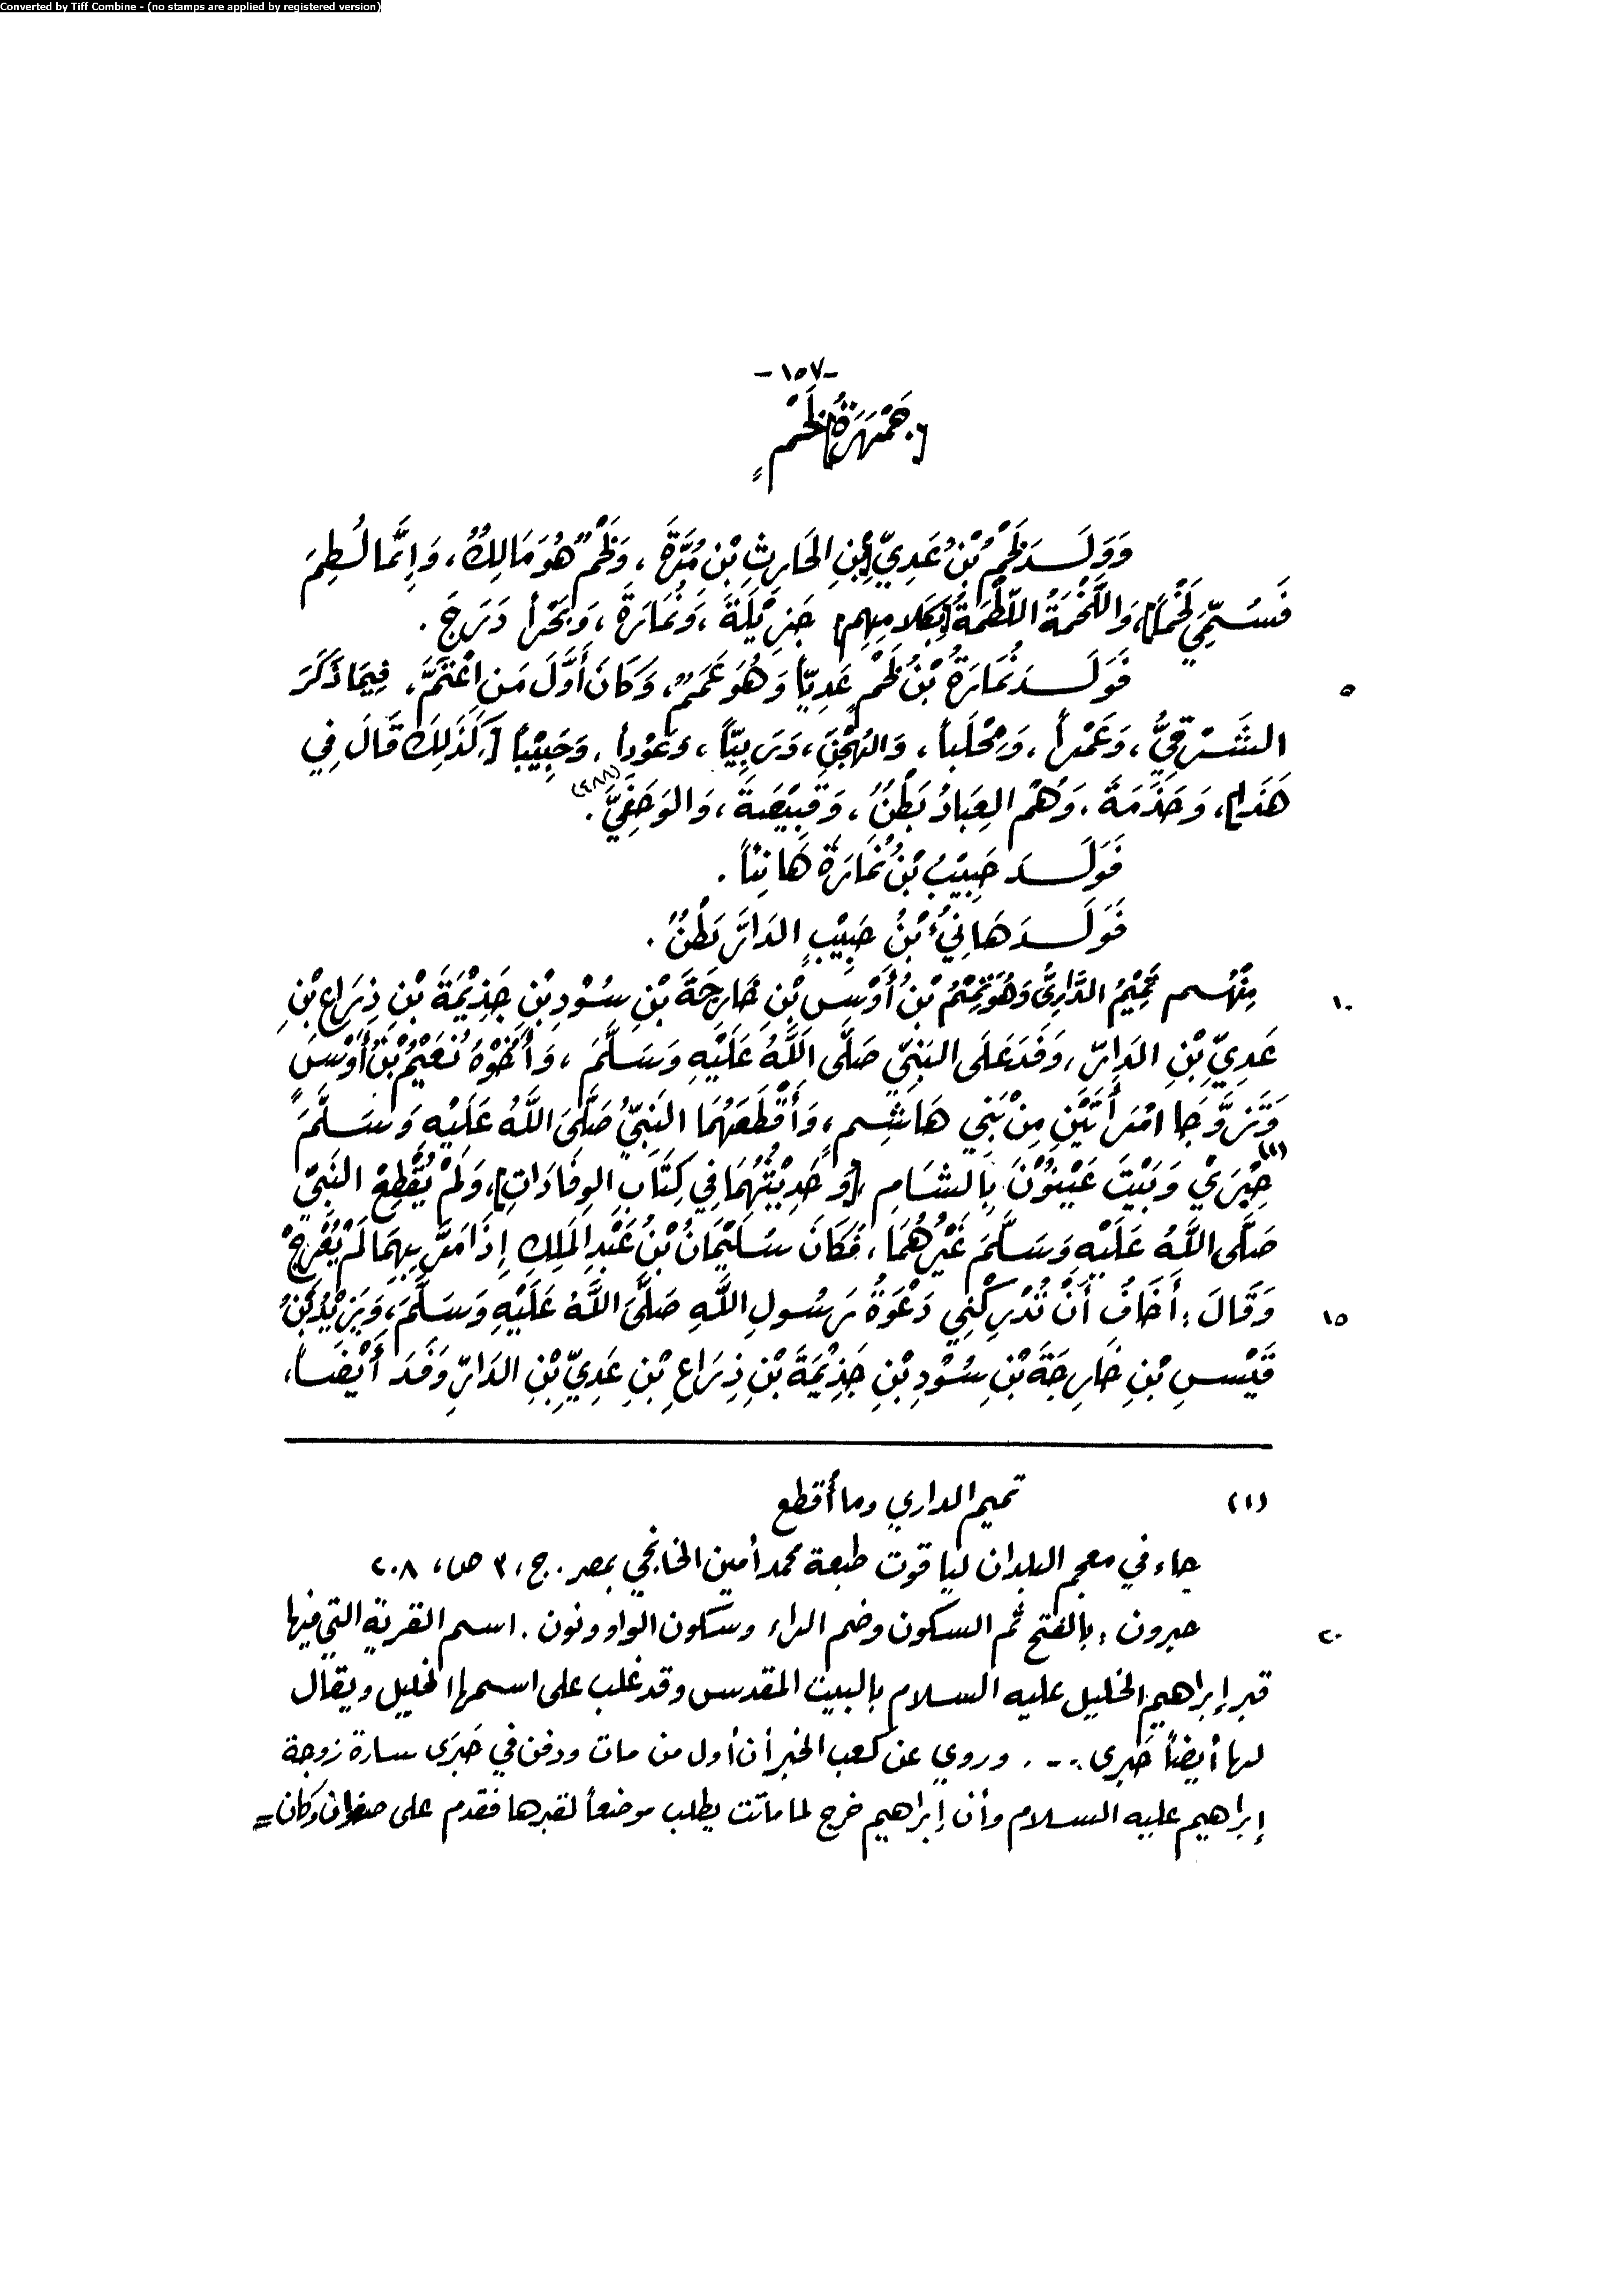 Converted by Tiff Combine - (no stamps are applied by registered version)
-١٥٧-
[جَمْهَرَةُ] لَخْمٍ
وَوَلَـدَ لَخْمُ بْنُ عَدِيِّ [بْنِ الحَارِثِ بْنِ مُرَّةَ ، وَلَخْمٌ هُوَ مَالِكٌ ، وَإِنَّمَا لُطِمَ
فَسُمِّيَ لَخْماً]، وَاللَّخْمَةُ اللَّطْمَةُ [بِكَلامِهِم] جَزِيْلَةَ ، وَنُمَارَةَ ، وَبَحْراً دَرَجَ .
فَوَلَـدَ نُمَارَةُ بْنُ لَخْمٍ عَدِيّاً وَهُوَ عَمَمٌ ، وَكَانَ أَوَّلَ مَنِ اعْتَمَّ ، فِيمَا ذَكَرَ
٥
الشَّرْقِيُّ ، وَعَمْراً ، وَمِحْلَباً ، وَالهُجْنَ ، وَرَبِيّاً ، وَعَوْداً ، وَحَبِيْباً [كَذَلِكَ قَالَ فِي
هَذَا]، وَحَذَمَةَ ، وَهُمُ العِبَادُ بَطْنٌ ، وَقَبِيْصَةَ ، وَالوَحَفِيَّ .
(٤٨٨)
فَوَلَـدَ حَبِيْبُ بْنُ نُمَارَةَ هَانِئاً .
فَوَلَـدَ هَانِيءُ بْنُ حَبِيْبٍ الدَارَ بَطْنٌ .
مِنْهُـم تَمِيْمُ الدَّارِيُّ وَهُوَ تَمِيْمُ بْنُ أَوْسِ بْنِ خَارِجَةَ بْنِ سُوْدِ بْنِ جَذِيْمَةَ بْنِ ذِرَاعِ بْنِ
١٠
عَدِيِّ بْنِ الدَارِ ، وَفَدَ عَلَى النَبِيِّ صَلَّى اللَّهُ عَلَيْهِ وَسَلَّمَ ، وَأَخُوْهُ نُعَيْمُ بْنُ أَوْسٍ
وَتَزَوَّجَا امْرَأَتَيْنِ مِنْ بَنِي هَاشِمٍ ، وَأَقْطَعَهُمَا النَبِيُّ صَلَّى اللَّهُ عَلَيْهِ وَسَلَّمَ
حِبْرَي وَبَيْتَ عَيْنُوْنَ بِالشَامِ ، [وَحَدِيْثُهُمَا فِي كِتَابِ الوِفَادَاتِ]، وَلَمْ يُقْطِعْ النَبِيُّ
(١)
صَلَّى اللَّهُ عَلَيْهِ وَسَلَّمَ غَيْرُهُمَا ، فَكَانَ سُلَيْمَانُ بْنُ عَبْدِ المَلِكِ إِذَا مَرَّ بِهِمَا لَمْ يُعَرِّجْ
وَقَالَ : أَخَافُ أَنْ تُدْرِكَنِي دَعْوَةُ رَسُولِ اللَّهِ صَلَّى اللَّهُ عَلَيْهِ وَسَلَّمَ ، وَيَزِيْدُ بْنُ
١٥
قَيْسِ بْنِ خَارِجَةَ بْنِ سُوْدِ بْنِ جَذِيْمَةَ بْنِ ذِرَاعِ بْنِ عَدِيِّ بْنِ الدَارِ وَفَدَ أَيْضاً ،
(١) تميم الداري وما أقطع
جاء في معجم البلدان لياقوت طبعة محمد أمين الخانجي بمصر . ج ، ٣ ص ، ٢٠٨
حبرون : بالفتح ثم السكون وضم الراء وسكون الواو ونون . اسم القرية التي فيها
٢٠
قبر إبراهيم الخليل عليه السلام بالبيت المقدس وقد غلب على اسمها الخليل ويقال
لها أيضاً حَبرى ... . وروي عن كعب الخبر أن أول من مات ودفن في حَبرَى سارة زوجة
إبراهيم عليه السلام وأن إبراهيم خرج لما ماتت يطلب موضعاً لقبرها فقدم على صفوان وكان =